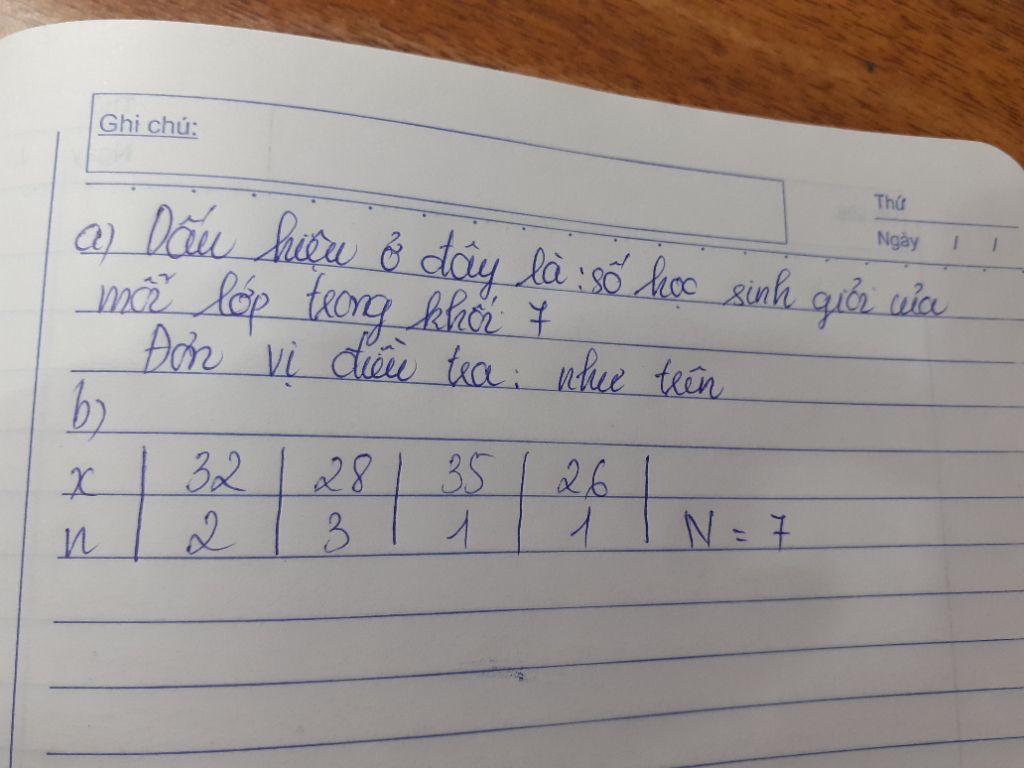 Ghi chú:
Thứ
Ngày / /
a) Dấu hiệu ở đây là: số học sinh giỏi của
mỗi lớp trong khối 7
Đơn vị điều tra: như trên
b)
x | 32 | 28 | 35 | 26 |
n | 2 | 3 | 1 | 1 | N = 7